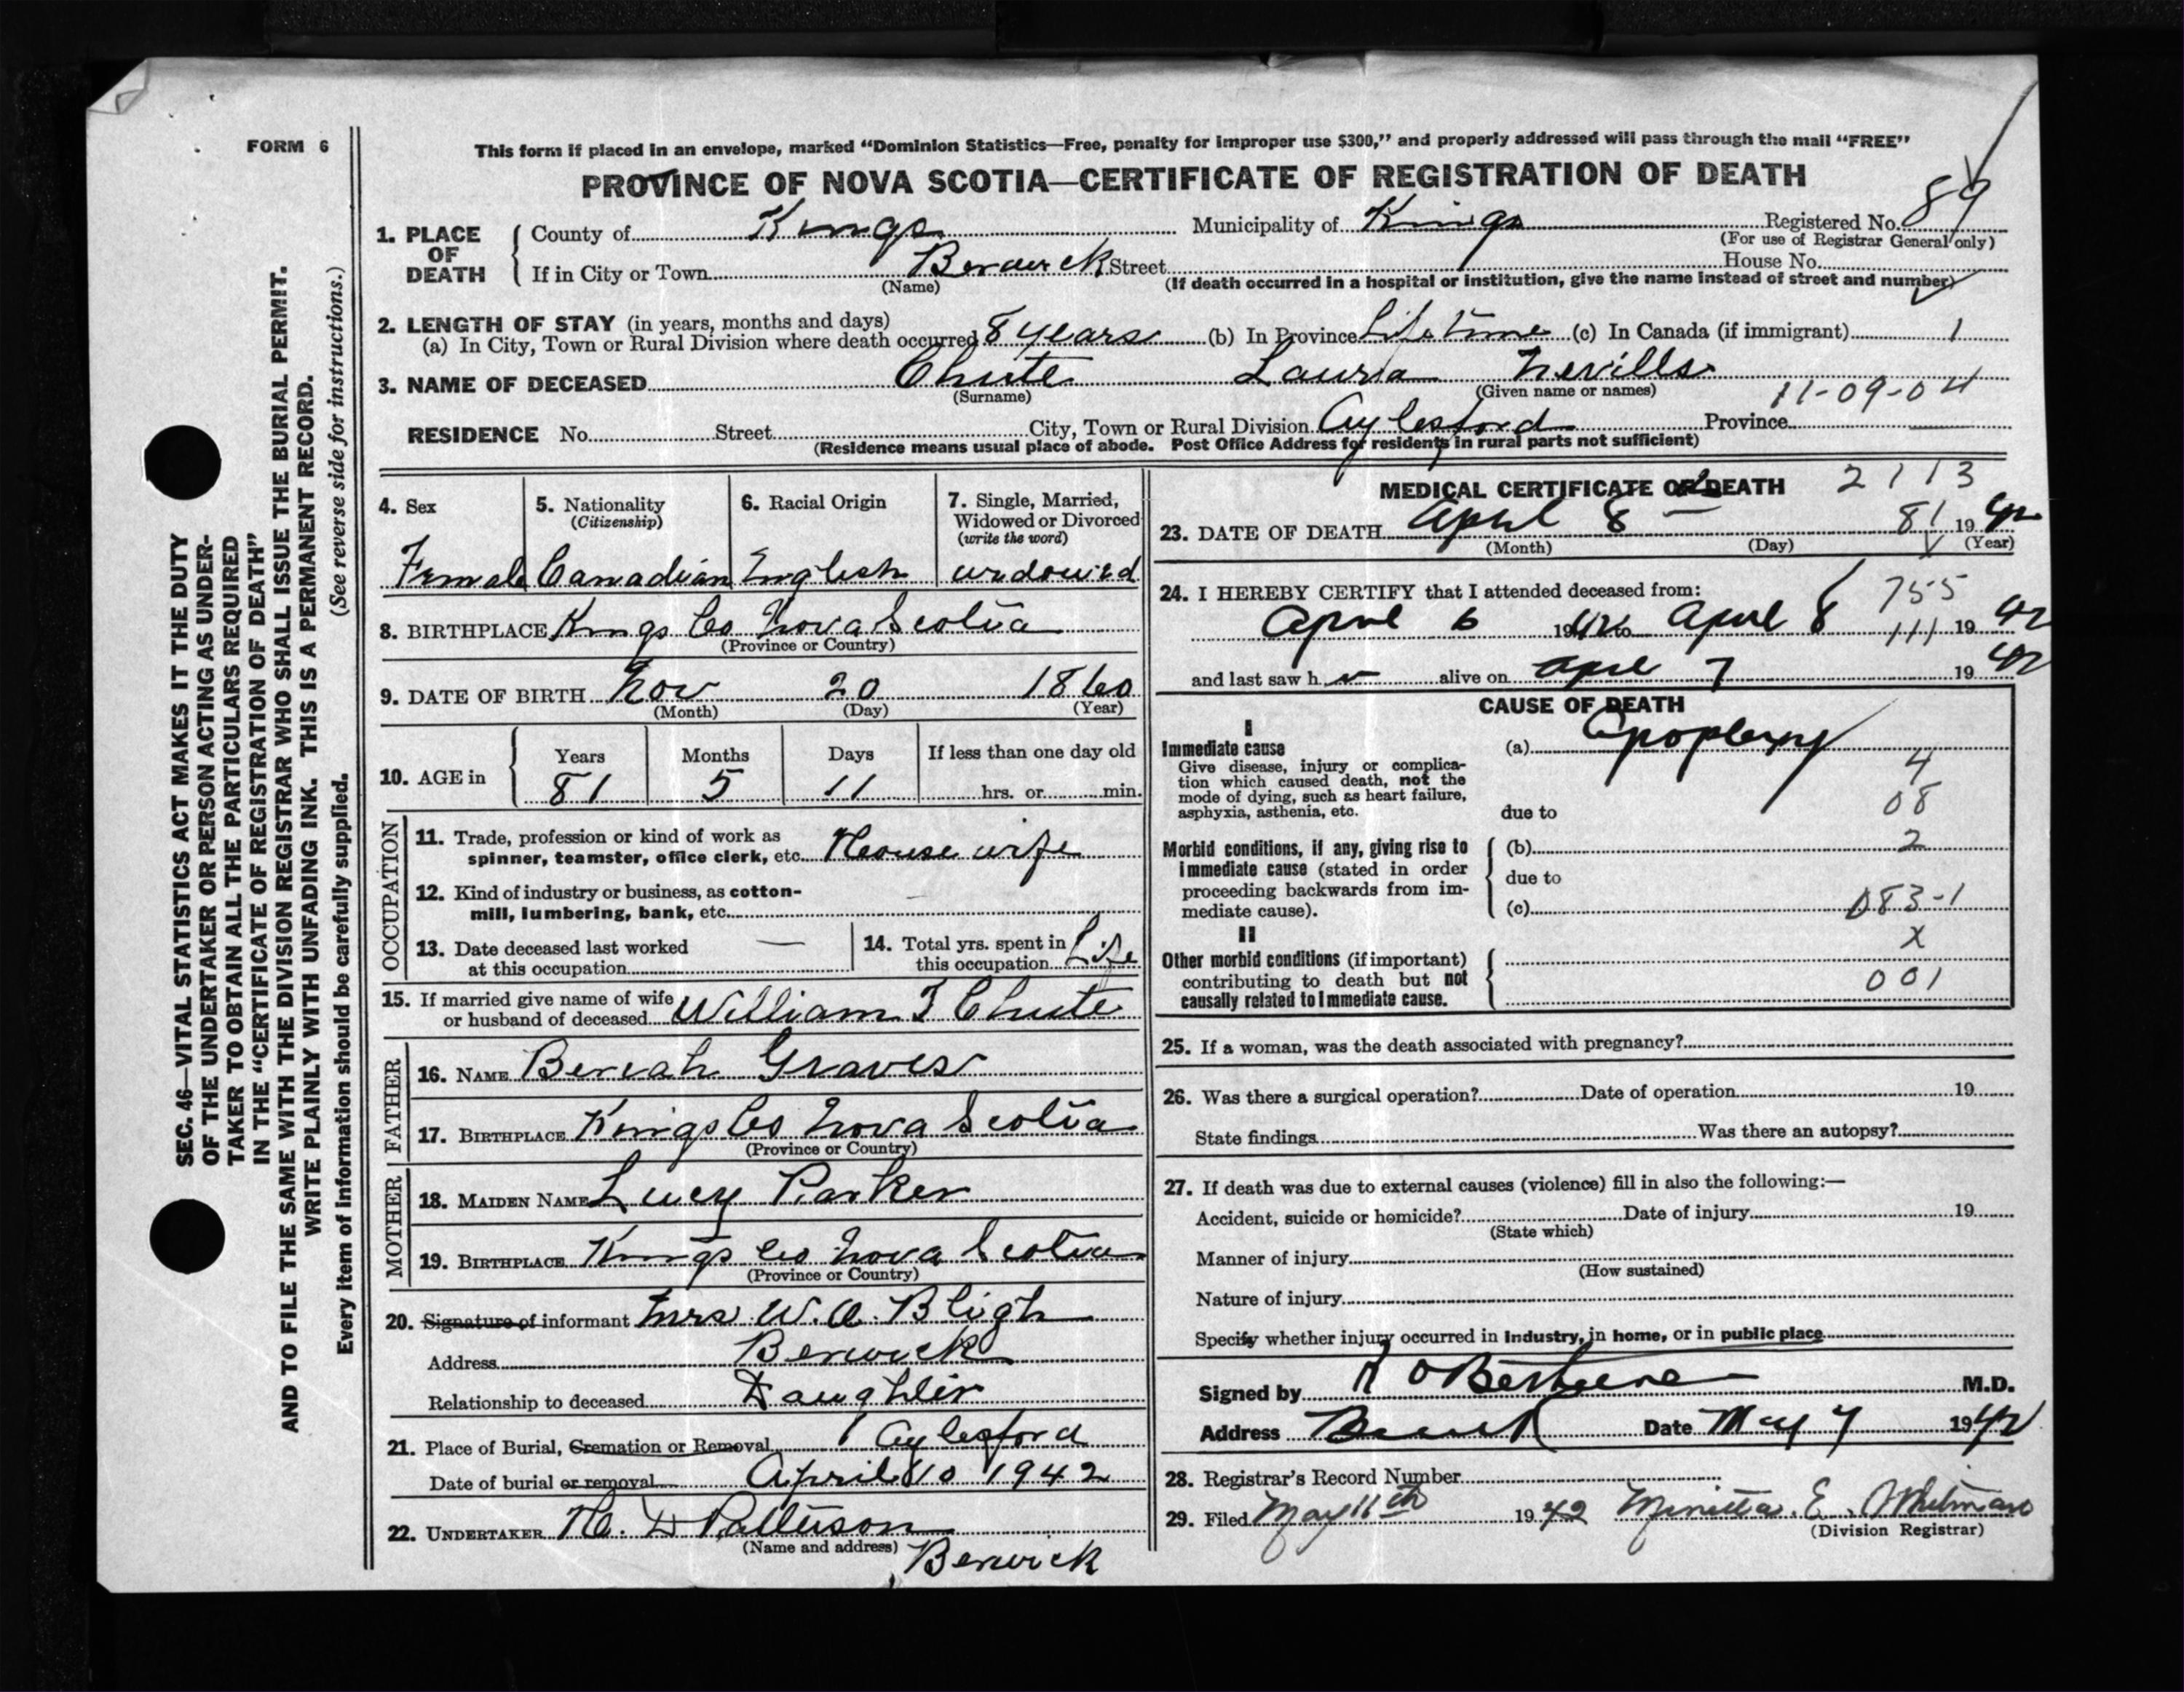 FORM 6
SEC. 46—VITAL STATISTICS ACT MAKES IT THE DUTY
OF THE UNDERTAKER OR PERSON ACTING AS UNDER-
TAKER TO OBTAIN ALL THE PARTICULARS REQUIRED
IN THE "CERTIFICATE OF REGISTRATION OF DEATH"
AND TO FILE THE SAME WITH THE DIVISION REGISTRAR WHO SHALL ISSUE THE BURIAL PERMIT.
WRITE PLAINLY WITH UNFADING INK. THIS IS A PERMANENT RECORD.
Every item of information should be carefully supplied. (See reverse side for instructions.)
This form if placed in an envelope, marked "Dominion Statistics—Free, penalty for improper use $300," and properly addressed will pass through the mail "FREE"
PROVINCE OF NOVA SCOTIA—CERTIFICATE OF REGISTRATION OF DEATH
1. PLACE OF DEATH County of Kings Municipality of Kings Registered No. 89
(For use of Registrar General only)
If in City or Town Berwick Street House No.
(Name) (If death occurred in a hospital or institution, give the name instead of street and number)
2. LENGTH OF STAY (in years, months and days)
(a) In City, Town or Rural Division where death occurred 8 years (b) In Province Life time (c) In Canada (if immigrant) 1
3. NAME OF DECEASED Chute Lauria Nevills
(Surname) (Given name or names) 11-09-04
RESIDENCE No. Street City, Town or Rural Division Aylesford Province
(Residence means usual place of abode. Post Office Address for residents in rural parts not sufficient)
4. Sex
Female
5. Nationality
(Citizenship)
Canadian
6. Racial Origin
English
7. Single, Married,
Widowed or Divorced
(write the word)
widowed
8. BIRTHPLACE Kings Co Nova Scotia
(Province or Country)
9. DATE OF BIRTH Nov 20 1860
(Month) (Day) (Year)
10. AGE in Years Months Days If less than one day old
81 5 11 hrs. or min.
OCCUPATION
11. Trade, profession or kind of work as
spinner, teamster, office clerk, etc. House wife
12. Kind of industry or business, as cotton-
mill, lumbering, bank, etc. —
13. Date deceased last worked —
at this occupation
14. Total yrs. spent in
this occupation Life
15. If married give name of wife
or husband of deceased William T Chute
FATHER
16. NAME Beriah Graves
17. BIRTHPLACE Kings Co Nova Scotia
(Province or Country)
MOTHER
18. MAIDEN NAME Lucy Parker
19. BIRTHPLACE Kings Co Nova Scotia
(Province or Country)
20. Signature of informant Mrs W. A. Bligh
Address Berwick
Relationship to deceased Daughter
21. Place of Burial, Cremation or Removal Aylesford
Date of burial or removal April 10 1942
22. UNDERTAKER H. D Patterson
(Name and address) Berwick
MEDICAL CERTIFICATE OF DEATH 2113
23. DATE OF DEATH April 8 — 81 1942
(Month) (Day) (Year)
24. I HEREBY CERTIFY that I attended deceased from: 755
April 6 1942 to April 8 111 1942
and last saw h r alive on April 7 1942
CAUSE OF DEATH
I
Immediate cause
Give disease, injury or complica-
tion which caused death, not the
mode of dying, such as heart failure,
asphyxia, asthenia, etc.
(a) Apoplexy
4
due to 08
Morbid conditions, if any, giving rise to
immediate cause (stated in order
proceeding backwards from im-
mediate cause).
(b) 2
due to
(c) 083-1
II
X
Other morbid conditions (if important)
contributing to death but not
causally related to immediate cause.
001
25. If a woman, was the death associated with pregnancy?
26. Was there a surgical operation? Date of operation 19
State findings Was there an autopsy?
27. If death was due to external causes (violence) fill in also the following:—
Accident, suicide or homicide? Date of injury 19
(State which)
Manner of injury
(How sustained)
Nature of injury
Specify whether injury occurred in industry, in home, or in public place
Signed by M.D.
Address Berwick Date May 7 1942
28. Registrar's Record Number
29. Filed May 11th 1942 Minetta E.
(Division Registrar)